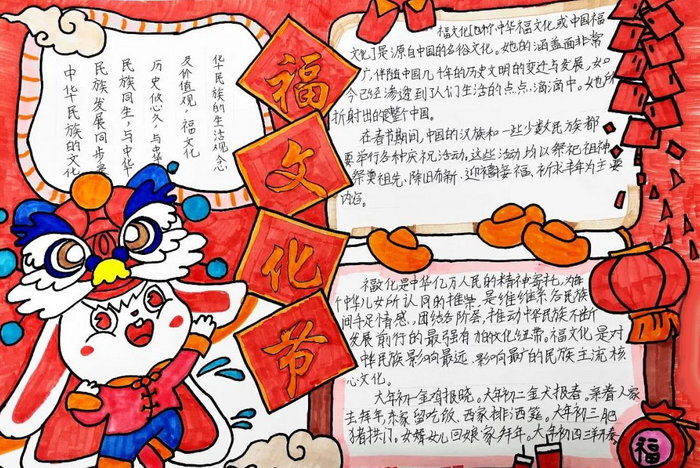 福
文
化
节
华民族的生活观念
及价值观 福文化
历史悠久,与中华
民族同生,与中华
民族发展同步
中华民族的文化
福文化[也称中华福文化或中国福
文化]是源自中国的名俗文化。她的涵盖面非常
广,伴随中国几千年的历史文明的变迁与发展,如
今已经渗透到人们生活的点点滴滴中。她所
折射出的是整个中国。
在春节期间,中国的汉族和一些少数民族都
要举行各种庆祝活动。这些活动均以祭祀祖神、
祭奠祖先、除旧布新、迎禧接福、祈求丰年为主要
内容。
福文化是中华亿万人民的精神寄托,为每
个中华儿女所认同的推崇,是维系各民族
间手足情感,团结各阶层,推动中华民族不断
发展前行的最强有力的文化纽带。福文化是对
中华民族影响最远、影响最广的民族主流核
心文化。
大年初一金鸡报晓。大年初二金犬报春。亲着人家
去拜年,东家留吃饭、西家排酒筵。大年初三肥
猪拱门。女婿女儿回娘家拜年。大年初四三羊开泰
福